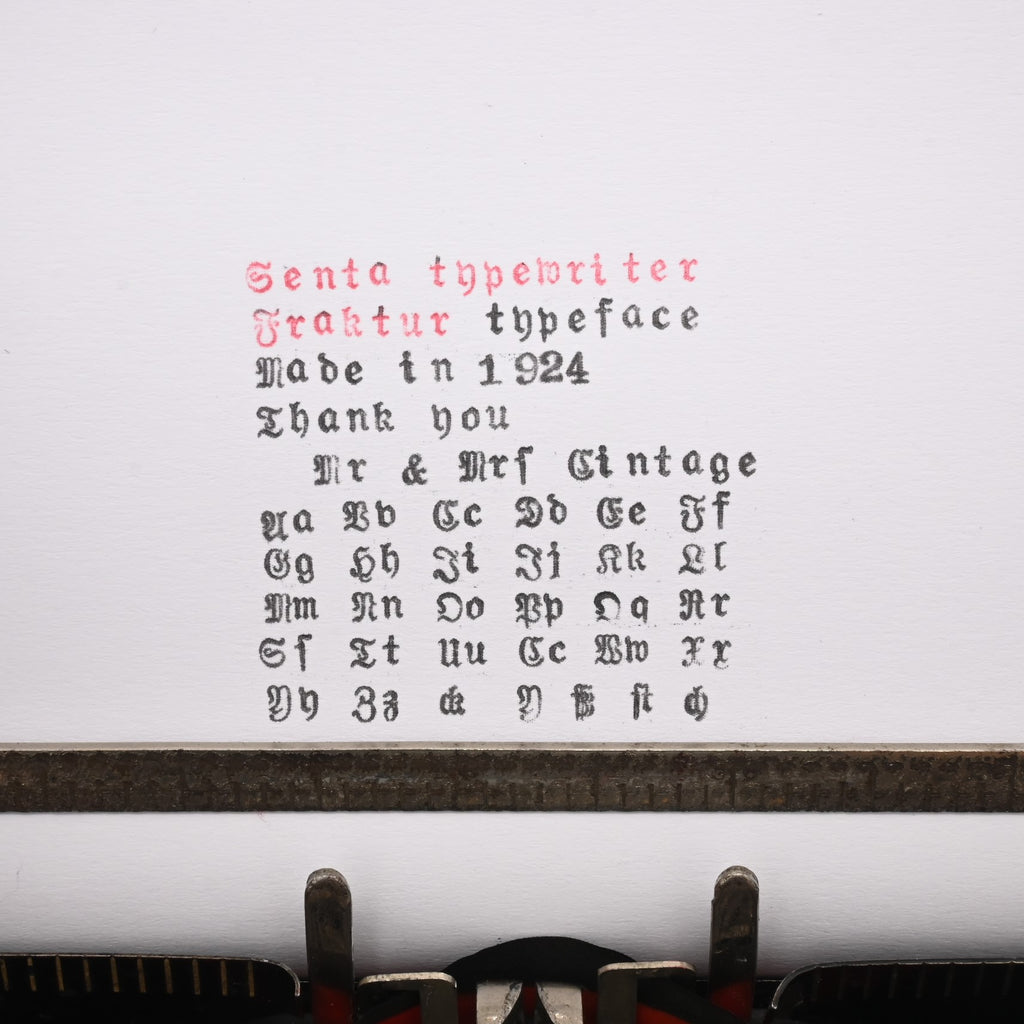 Senta typewriter
Fraktur typeface
Made in 1924
Thank you
Mr & Mrſ Cintage
Aa Vv Cc Dd Ee Ff
Gg Hh Ii Jj Kk Ll
Mm Nn Oo Pp Qq Rr
Sſ Tt Uu Cc Ww Xx
Yy Zz ck Y ſt ch